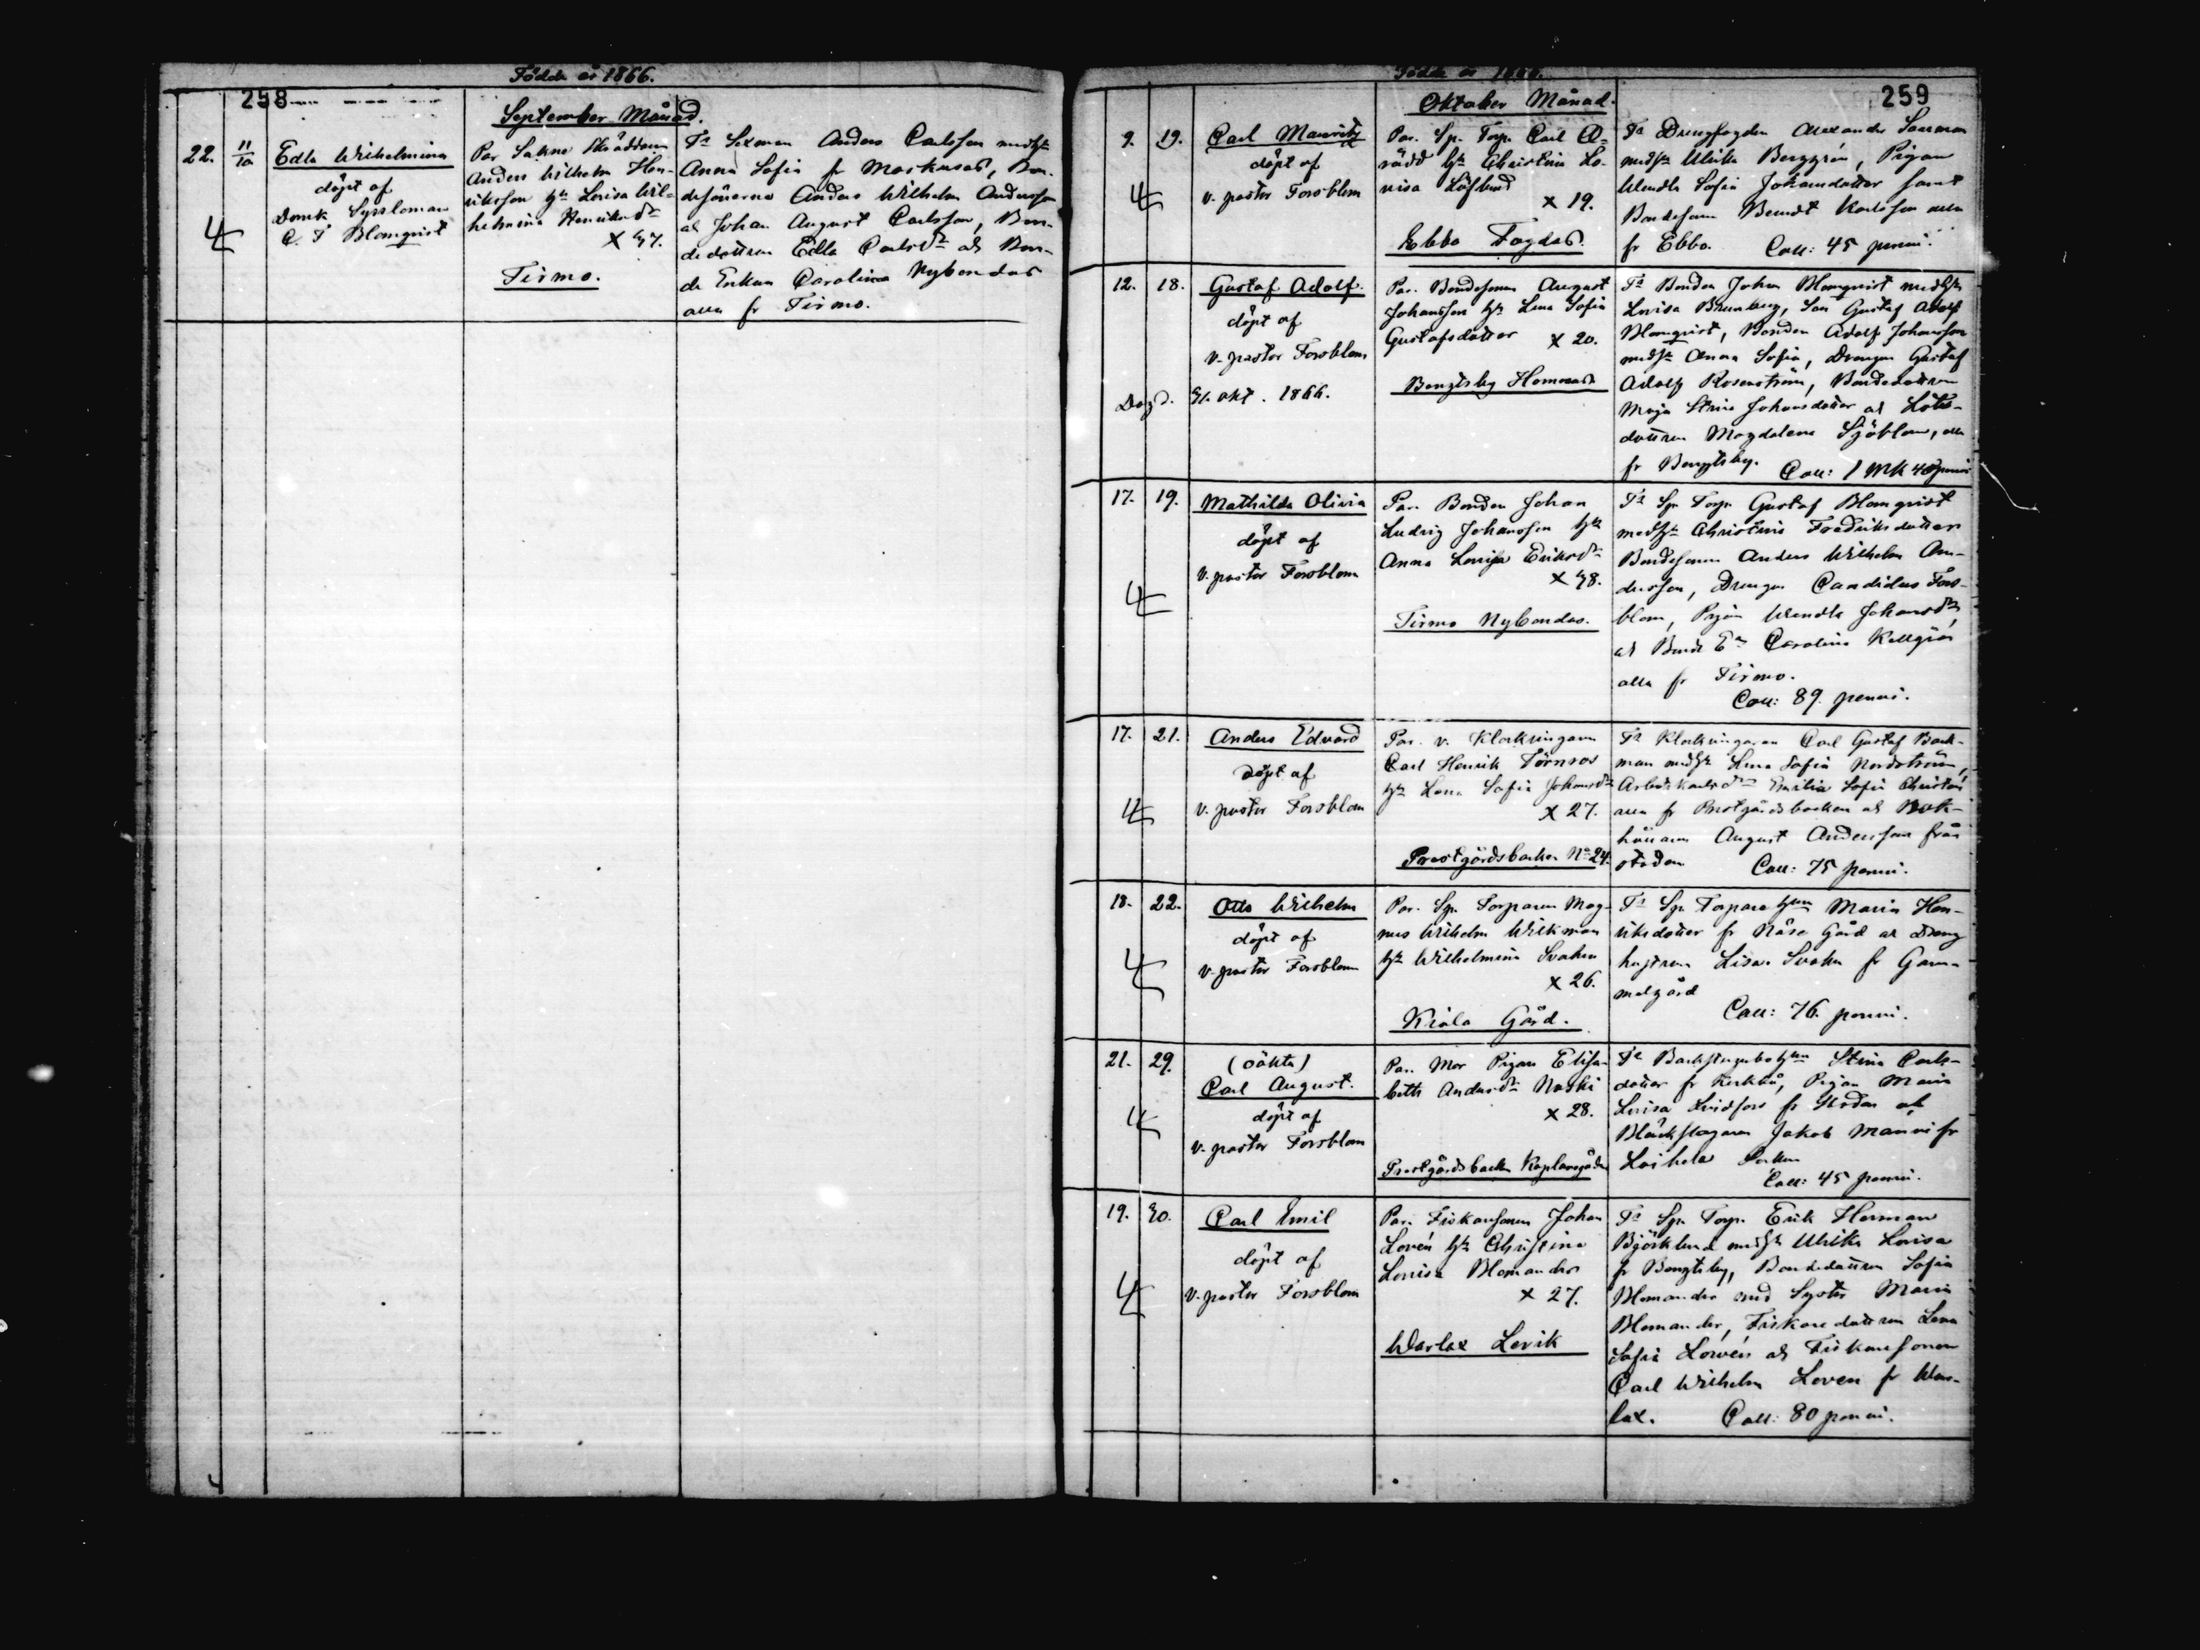 Födde år 1866.
258
September Månad.
22. 11/10 Edla Wilhelmina
döpt af
Domk. Syssloman
C. F. Blomqvist
Par. Sakne Skräddaren
Anders Wilhelm Hen-
riksson hu Lovisa Wil-
helmina Henriksdr
x 37.
Tirmo.
Fr Sexman Anders Carlsson medhu
Anna Sofia fr Moskusas, Bon-
desönerne Anders Wilhelm Andersson
ah Johan August Carlsson, Bon-
dedottren Edla Carlsdr ah Bon-
de Enkan Carolina Nybondas
alla fr Tirmo.
Födde år 1866.
259
Oktober Månad.
9. 19. Carl Mauritz
döpt af
v. pastor Forsblom
Par. Sp. Torp. Carl A-
rädd hu Christina Lo-
visa Löflund
x 19.
Ebbo Fogdas.
Fr Drengfogden Alexander Saurman
medhu Ulrika Berggrén, Pigan
Wendla Sofia Johansdotter samt
Bondesonen Berndt Karlsson alla
fr Ebbo. Coll: 45 penni.
12. 18. Gustaf Adolf.
döpt af
v. pastor Forsblom
Död. 31. okt. 1866.
Par. Bondesonen August
Johansson hu Lena Sofia
Gustafsdotter x 20.
Bengtsby Hommas
Fr Bonden Johan Blomqvist medhu
Lovisa Brunberg, Son Gustaf Adolf
Blomqvist, Bonden Adolf Johansson
medhu Anna Sofia, Drengen Gustaf
Adolf Rosenström, Bondedottren
Maja Stina Johansdotter ah Lots-
dottren Magdalena Sjöblom, alla
fr Bengtsby. Coll: 1 Mk 40 penni
17. 19. Mathilda Olivia
döpt af
v. pastor Forsblom
Par. Bonden Johan
Ludvig Johansson hu
Anna Lovisa Eriksdr
x 38.
Tirmo Nybondas.
Fr Sp. Torp. Gustaf Blomqvist
medhu Christina Fredriksdotter
Bondesonen Anders Wilhelm An-
dersson, Drengen Candidus Fors-
blom, Pigan Wendla Johansdr,
ah Bonde En Carolina Kellgrén
alla fr Tirmo.
Coll: 89. penni.
17. 21. Anders Edvard
döpt af
v. pastor Forsblom
Par. v. Klockringaren
Carl Henrik Törnroos
hu Lena Sofia Johansdr
x 27.
Prestgårdsbacken No 24.
Fr Klockringaren Carl Gustaf Back-
man medhu Lena Sofia Nordström,
Arbetskarlsdr Emilia Sofia
alla fr Prestgårdsbacken ah Bok-
hållaren August Andersson från
staden Coll: 75 penni.
18. 22. Otto Wilhelm
döpt af
v. pastor Forsblom
Par. Sp. Torparen Mag-
nus Wilhelm Wilkman
hu Wilhelmina Svahn
x 26.
Kiala Gård.
Fr Sp. Torpare hun Maria Hen-
riksdotter fr Näse Gård ah Dreng
hustrun Lisa Svahn fr Gam-
melgård
Coll: 76. penni.
21. 29. (oäkta)
Carl August.
döpt af
v. pastor Forsblom
Par. Mor Pigan Elisa-
beth Andersdr Naski
x 28.
Prestgårdsbacken Kaplansgården
Fr Backstugubo hun Stina Carls-
dotter fr Kerkko, Pigan Maria
Lovisa Lindfors fr staden ah
Bläckslagaren Jakob Manni fr
Laihela Socken
Coll: 45 penni.
19. 30. Carl Emil
döpt af
v. pastor Forsblom
Par. Fiskarsonen Johan
Lovén hu Christina
Lovisa Blomander
x 27.
Warlax Lerik
Fr Sp. Torp. Erik Herman
Björklund medhu Ulrika Lovisa
fr Bengtsby, Bondedottren Sofia
Blomander med Syster Maria
Blomander, Fiskaredottren Lena
Sofia Lovén ah Fiskarsonen
Carl Wilhelm Loven fr War-
lax. Coll: 80 penni.